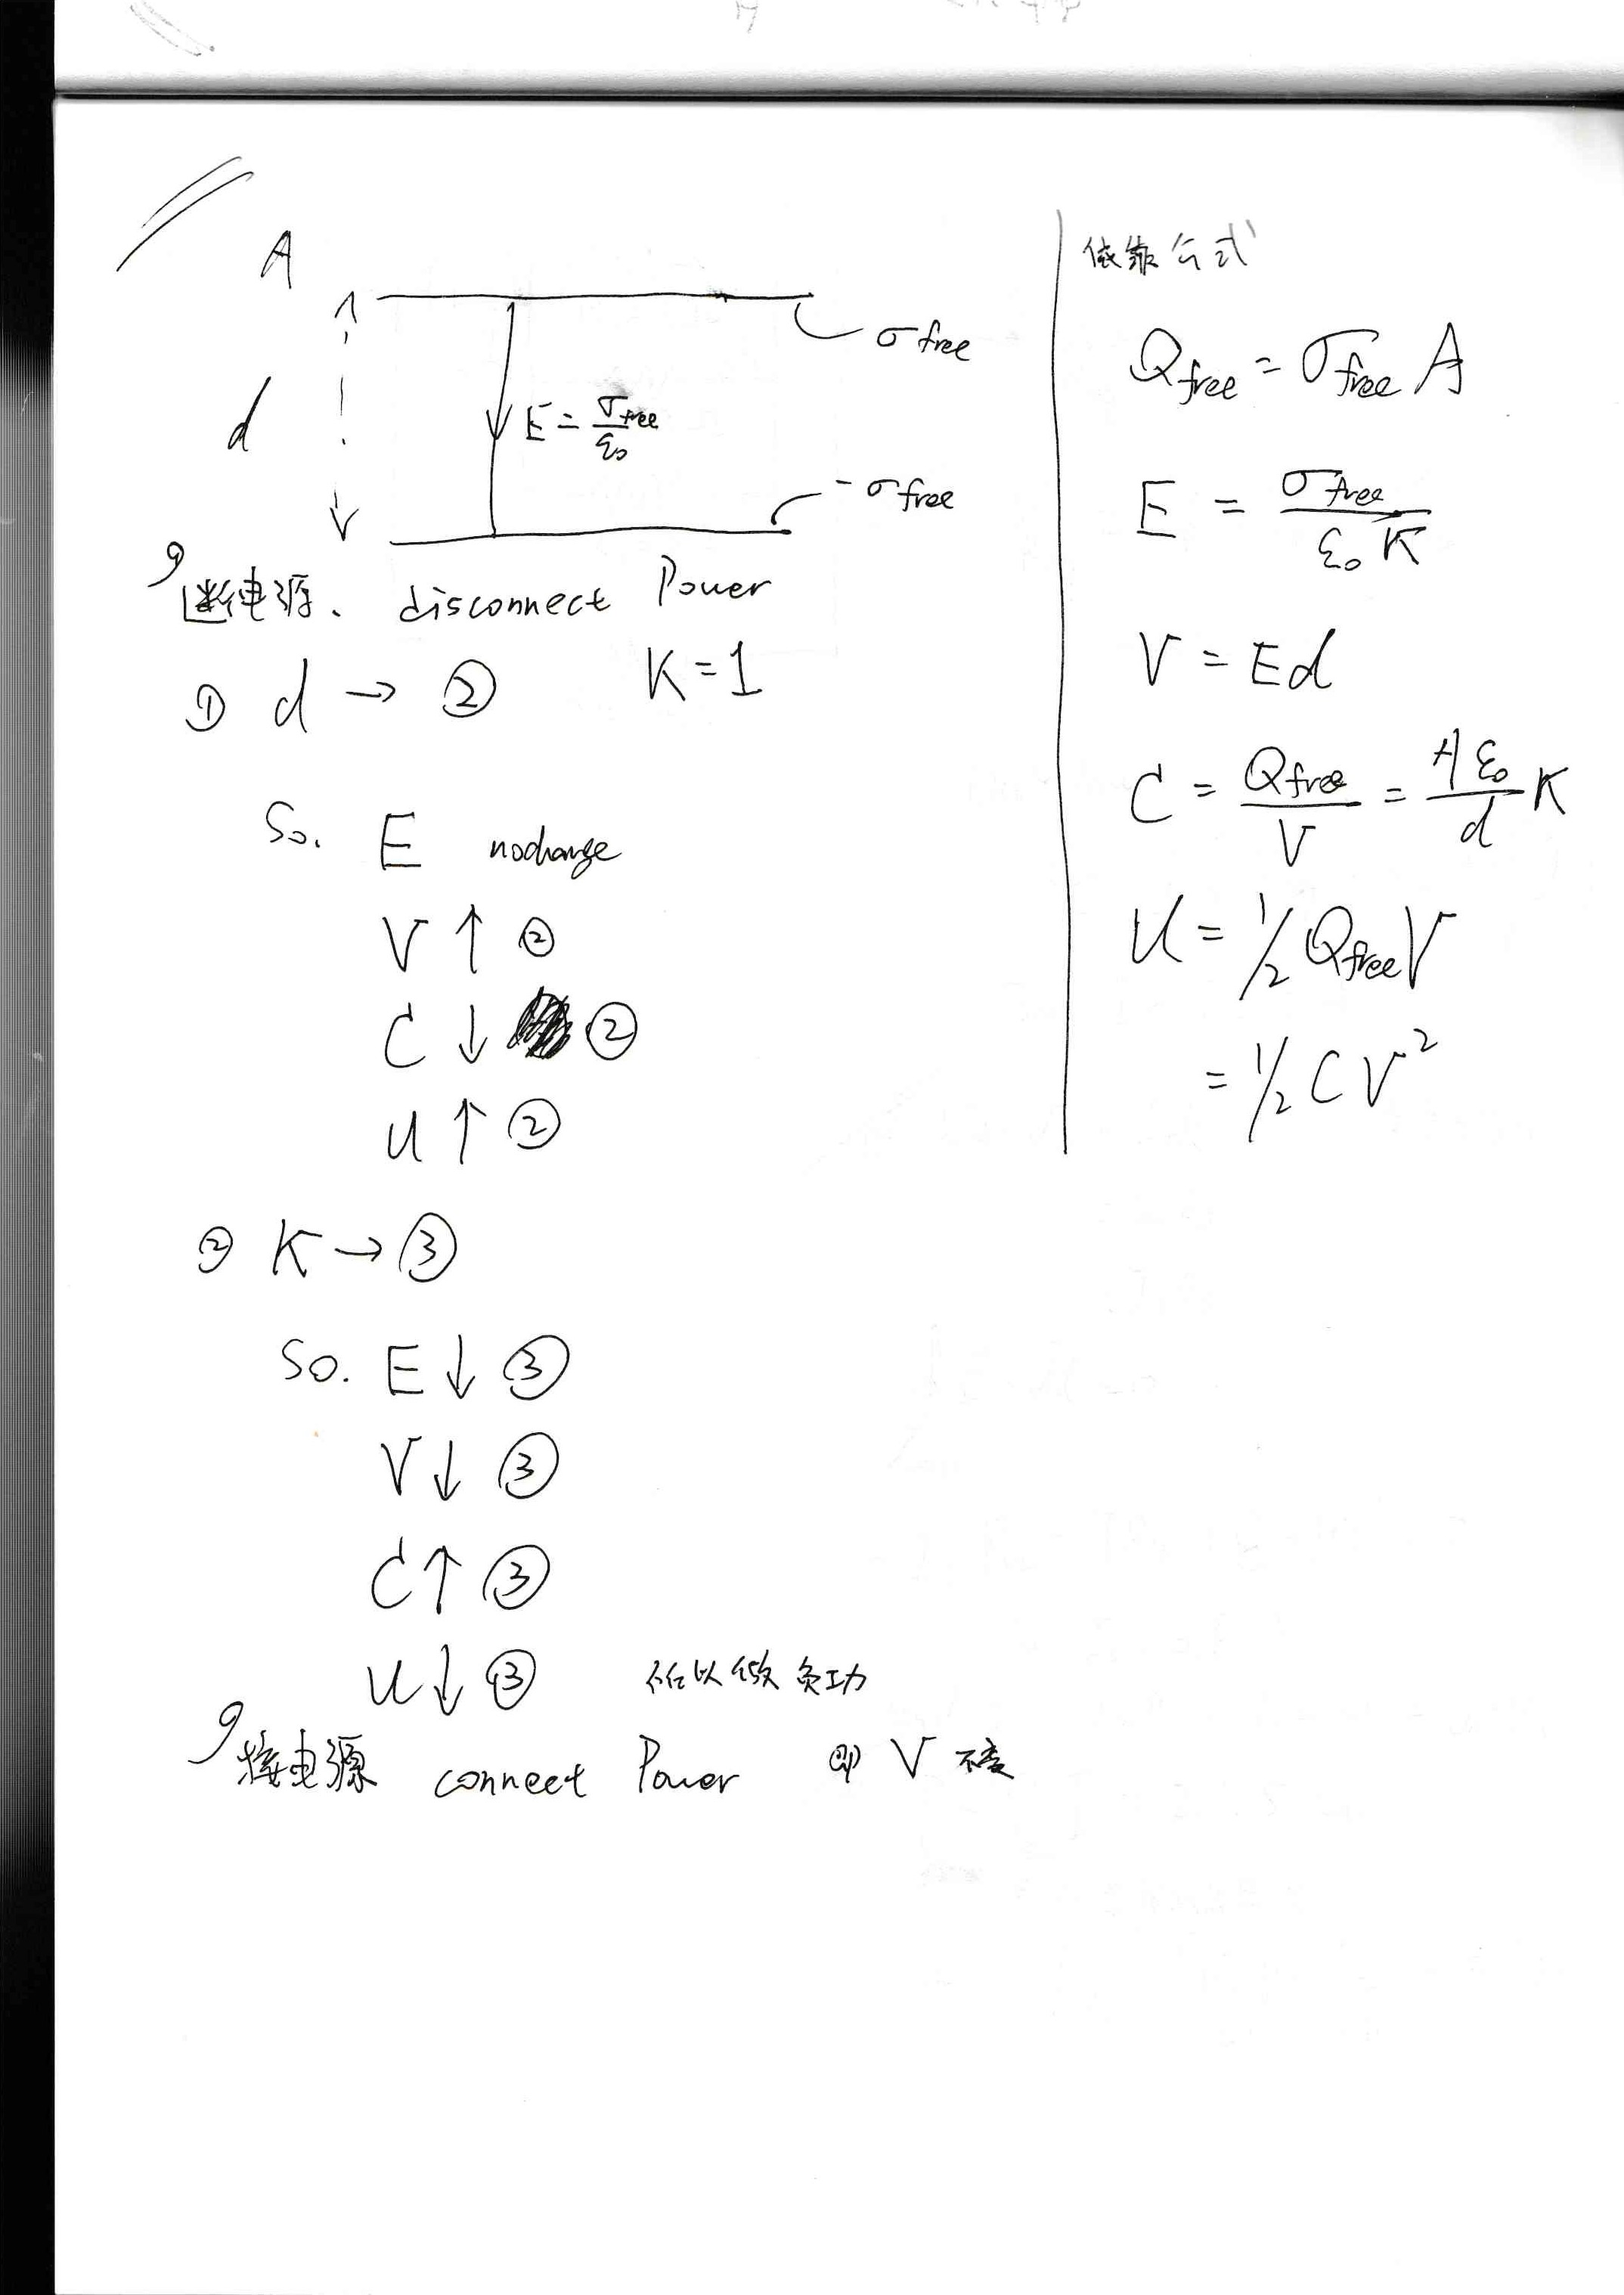 A
σ free
d
E = σfree / ε₀
- σ free
断电源. disconnect Power
① d → ② K = 1
So. E nochange
V ↑ ②
C ↓ ②
U ↑ ②
② K → ③
So. E ↓ ③
V ↓ ③
C ↑ ③
U ↓ ③ 所以做负功
接电源 connect Power 即 V 不变
依靠公式
Qfree = σfree A
E = σfree / ε₀ K
V = Ed
C = Qfree / V = Aε₀ / d K
U = 1/2 Qfree V
= 1/2 C V²